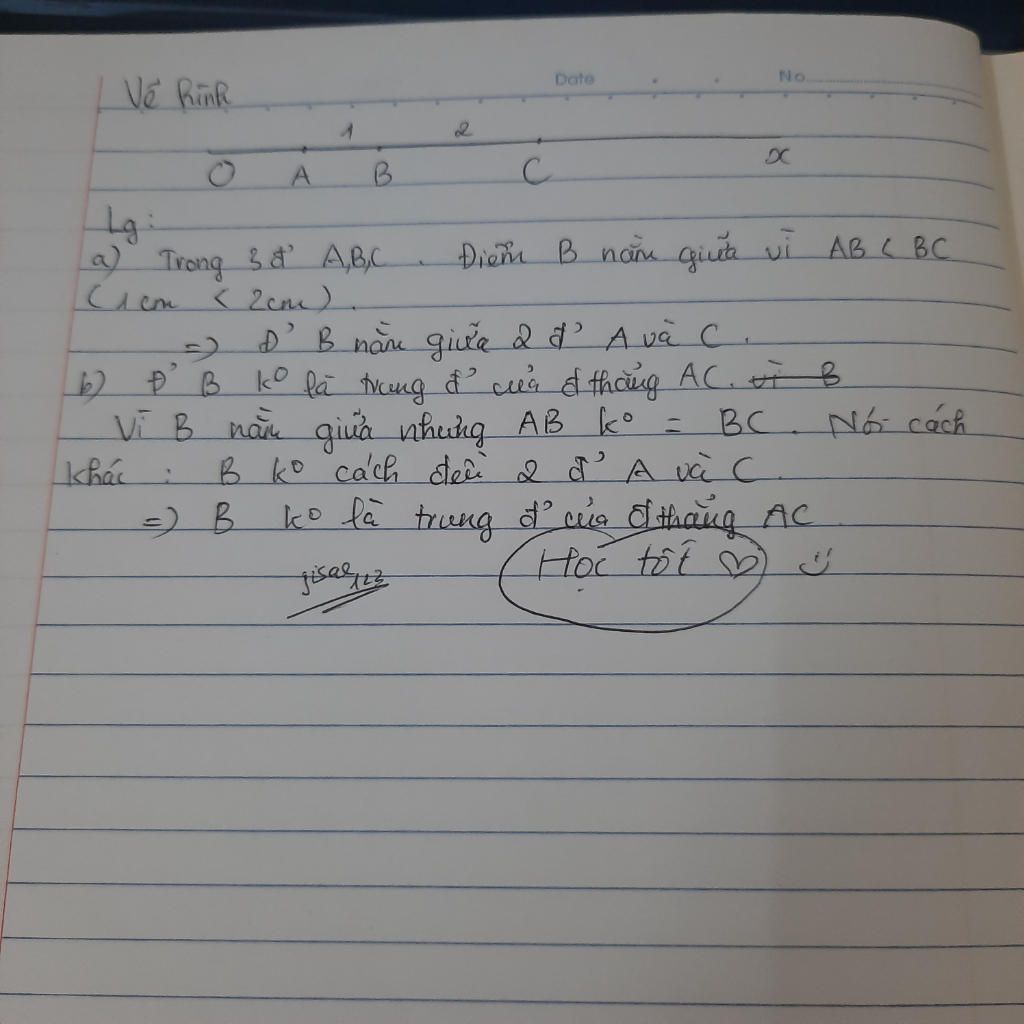 Date No
Vẽ hình
1 2
O A B C x
Lg:
a) Trong 3 đ' A,B,C. Điểm B nằm giữa vì AB < BC
(1cm < 2cm).
=> Đ' B nằm giữa 2 đ' A và C.
b) Đ' B ko là trung đ' của đ thẳng AC. vì B
Vì B nằm giữa nhưng AB ko = BC. Nói cách
khác: B ko cách đều 2 đ' A và C.
=> B ko là trung đ' của đ thẳng AC
Học tốt ♡